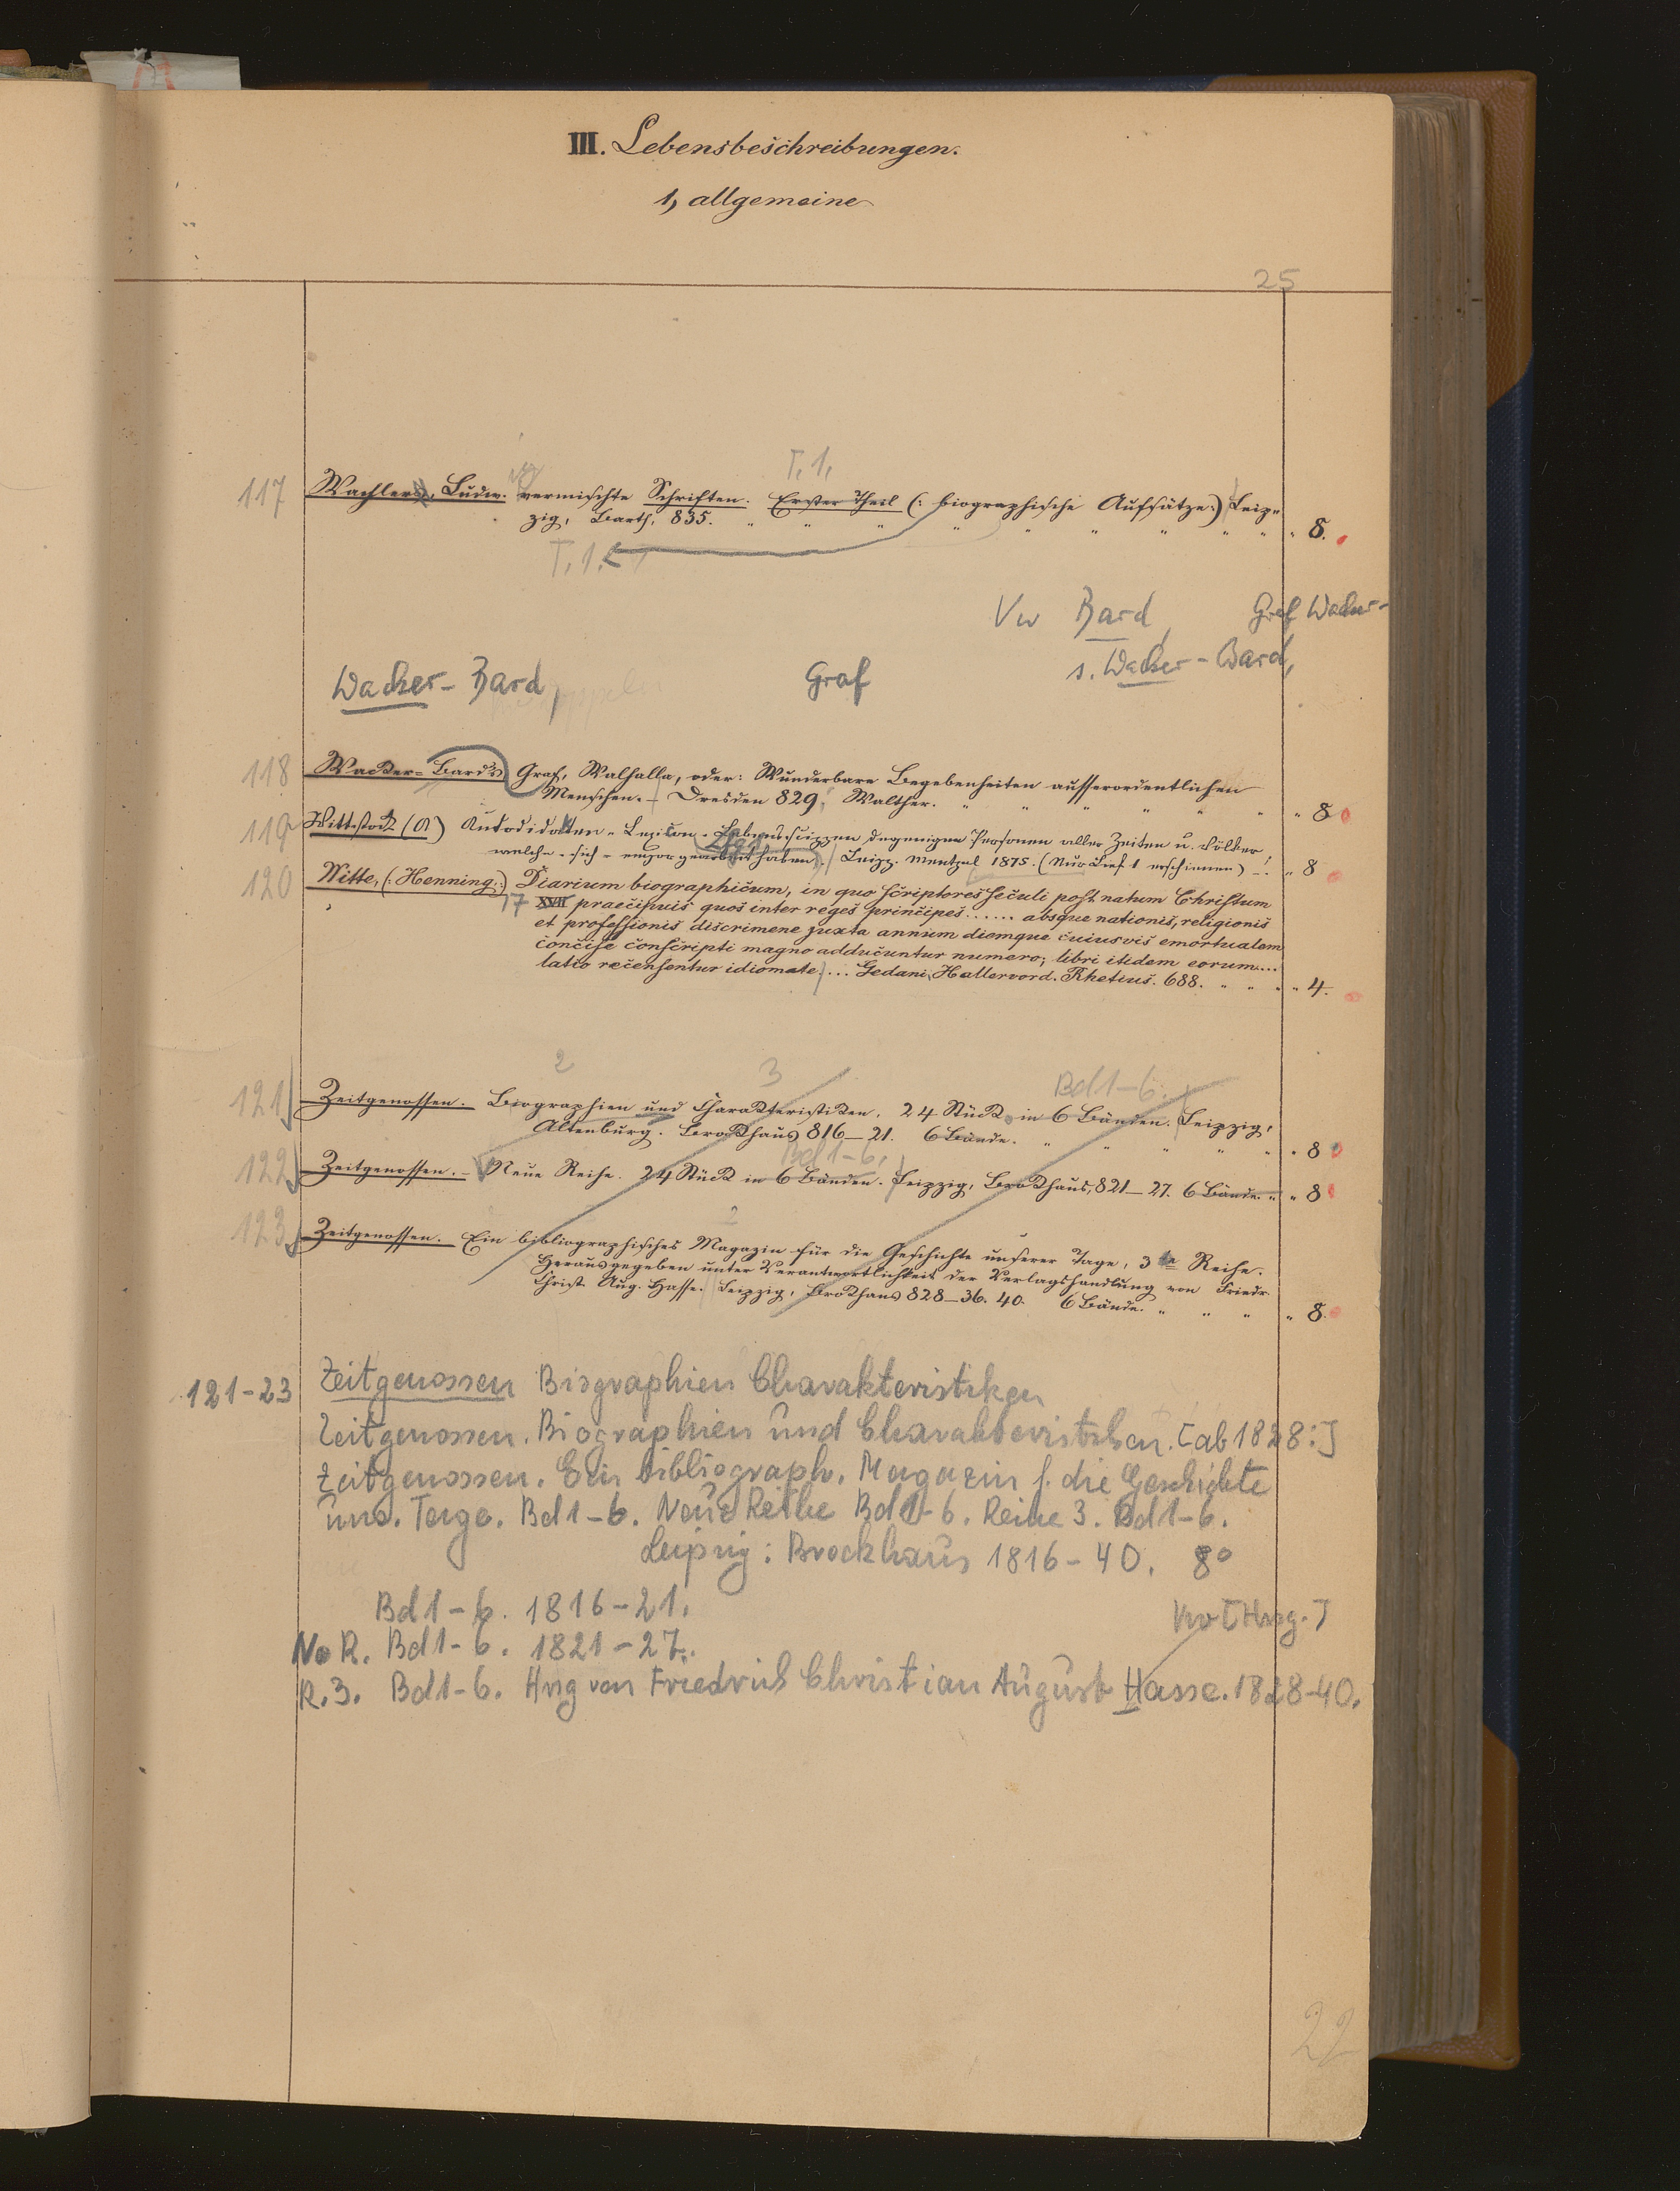 III. Lebensbeschreibungen.
1, allgemeine
25
T. 1.
117 Wachlers, Ludw. vermischte Schriften. Erster Theil (: biographische Aufsätze:) Leip-
zig, Barth, 835. " " " " " " " " " 8.
T. 1.
Vw Bard, Graf Wacker-
s. Wacker-Bard,
Wacker-Bard, Graf
118 Wacker-Bard's Graf, Walhalla, oder: Wunderbare Begebenheiten ausserordentlichen
Menschen. – Dresden 829, Walther. " " " " " " " 8
119 Wittstock (A) Autodidakten-Lexicon. Lebensskizzen derjenigen Personen aller Zeiten u. Völker,
welche sich emporgearbeitet haben. Leipz. Mentzel 1875. (Nur Lief. 1 erschienen) –. " 8
120 Witte, (: Henning:) Diarium biographicum, in quo scriptores seculi post natum Christum
17 XVII praecipuis quos inter reges principes ...... absque nationis, religionis
et professionis discrimene juxta annum diemque cuiusvis emortualem
concise conscripti magno adducuntur numero; libri itidem eorum....
latio recensentur idiomate ... Gedani, Hallervord. Rhetius. 688. " " " " 4.
2 3 Bd 1-6.
121 Zeitgenossen. Biographien und Charakteristiken. 24 Stück in 6 Bänden. Leipzig,
Altenburg. Brockhaus 816–21. 6 Bände. " " " " " " 8
Bd 1-6.
122 Zeitgenossen. – Neue Reihe. 24 Stück in 6 Bänden. Leipzig, Brockhaus, 821–27. 6 Bände. " " 8
2
123 Zeitgenossen. Ein bibliographisches Magazin für die Geschichte unserer Tage, 3te Reihe.
Herausgegeben unter Verantwortlichkeit der Verlagshandlung von Friedr.
Christ. Aug. Hasse. Leipzig, Brockhaus 828–36. 40. 6 Bände. " " " " 8.
121-23 Zeitgenossen Biographien Charakteristiken
Zeitgenossen. Biographien und Charakteristiken. [ab 1828:]
Zeitgenossen. Ein bibliograph. Magazin f. die Geschichte
uns. Tage. Bd 1-6. Neue Reihe Bd 1-6. Reihe 3. Bd 1-6.
Leipzig: Brockhaus 1816-40. 8°
Bd 1-6. 1816-21. Vw [Hrsg.]
N. R. Bd 1-6. 1821-27.
R. 3. Bd 1-6. Hrsg von Friedrich Christian August Hasse. 1828-40.
22